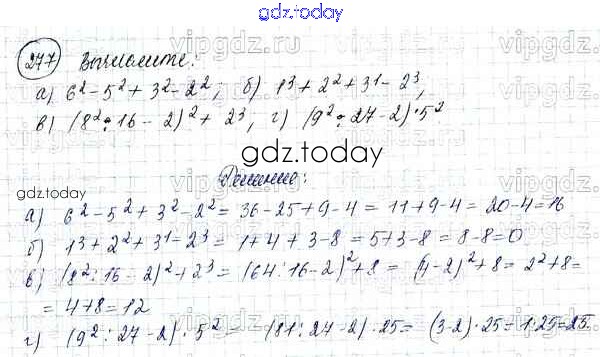 gdz.today
277 Вычислите:
а) 6² – 5² + 3² – 2²; б) 1³ + 2² + 3¹ – 2³;
в) (8² : 16 – 2)² + 2³; г) (9² : 27 – 2) · 5²
gdz.today
Решение:
gdz.today
а) 6² – 5² + 3² – 2² = 36 – 25 + 9 – 4 = 11 + 9 – 4 = 20 – 4 = 16
б) 1³ + 2² + 3¹ – 2³ = 1 + 4 + 3 – 8 = 5 + 3 – 8 = 8 – 8 = 0
в) (8² : 16 – 2)² + 2³ = (64 : 16 – 2)² + 8 = (4 – 2)² + 8 = 2² + 8 =
= 4 + 8 = 12
г) (9² : 27 – 2) · 5² = (81 : 27 – 2) · 25 = (3 – 2) · 25 = 1 · 25 = 25.
gdz.today